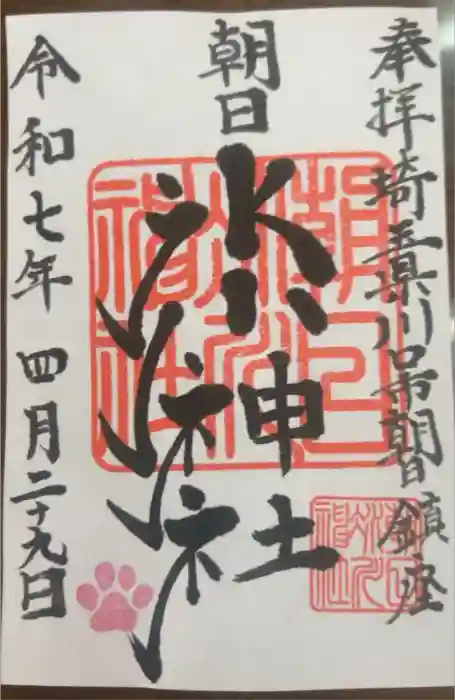 奉拝 埼玉県川口市朝日鎮座
朝日
氷川神社
令和七年 四月二十九日
朝日
氷川
神社